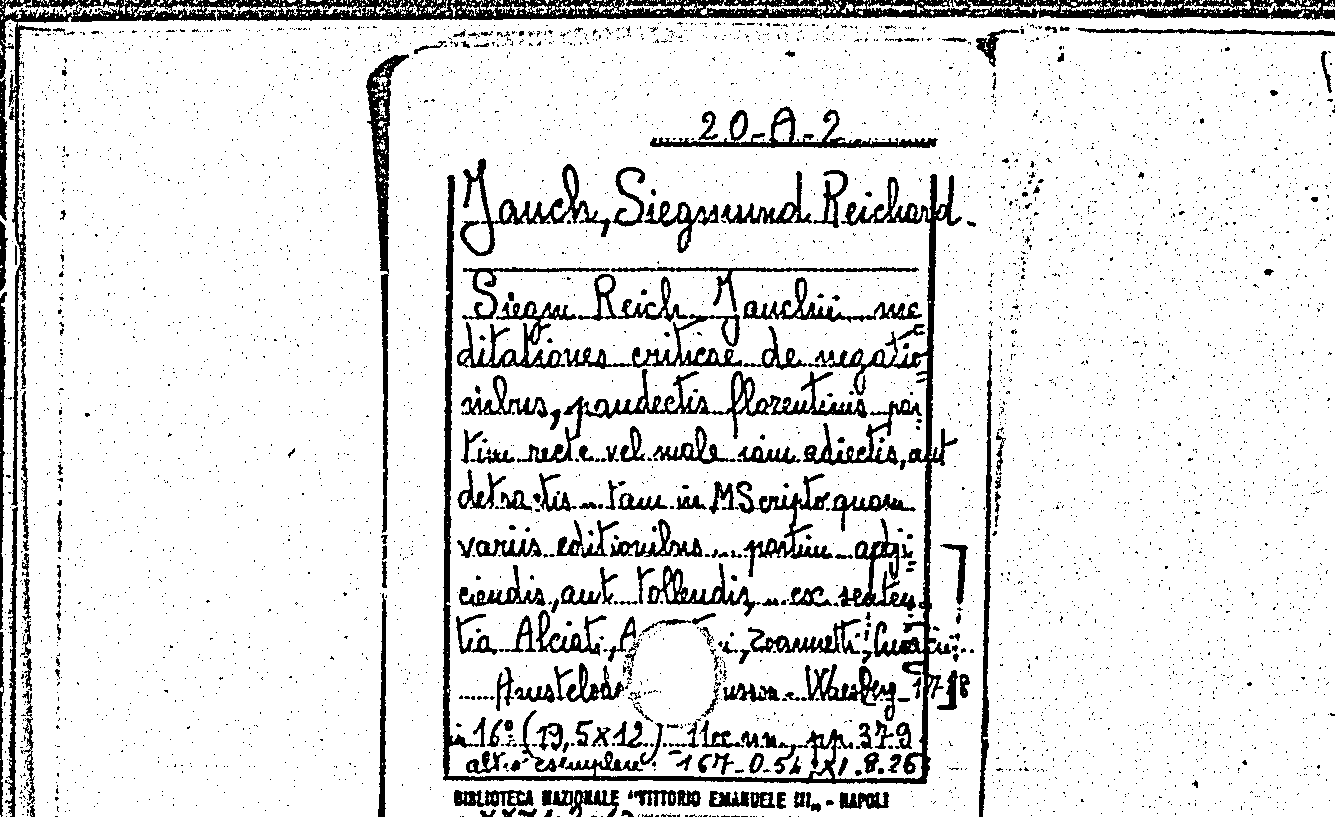 20-A-2
Jauch, Siegmund Reichard.
Siegm Reich Jauchii me
ditationes criticae de negatio
nibus, pandectis florentinis par
tim recte vel male iam adiectis, aut
detractis tam in MScripto quam
variis editionibus partim adji
ciendis, aut tollendis, ex senten
tia Alciati, A i, Zoannetti,
Amstelod Waesberg 1728
in 16° (19,5x12) 11cc.nn., pp. 379
altro esemplare: 167-O-54; XI.8.26
BIBLIOTECA NAZIONALE "VITTORIO EMANUELE III" - NAPOLI